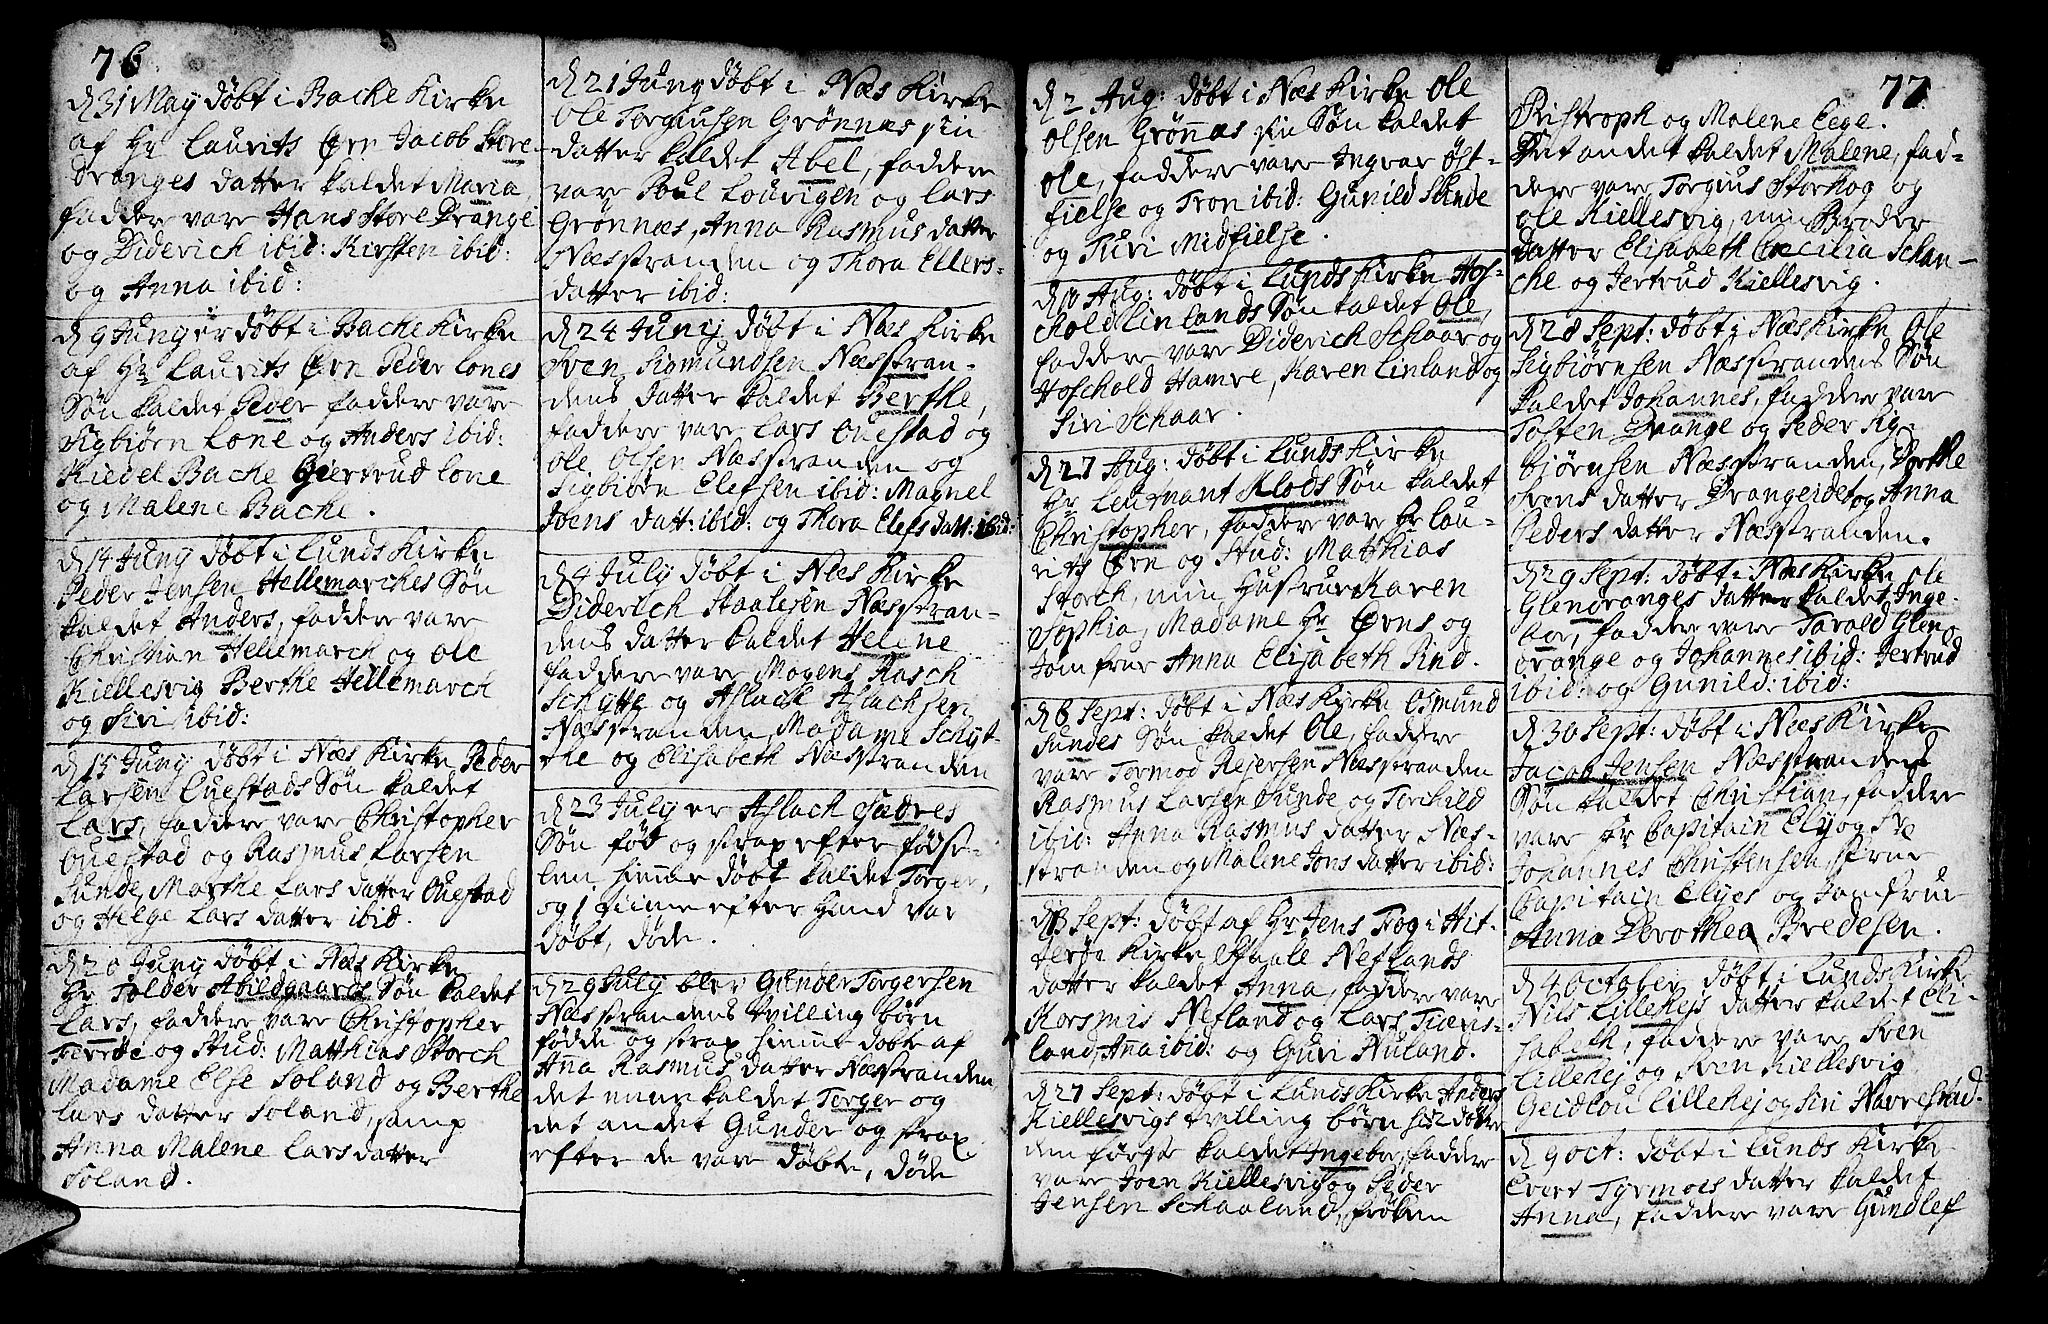 76
d 31 May döbt i Bache Kirke
af Hr Laurits Ørn Jacob Store-
dranges datter kaldet Maria,
faddere vare Hans Store Drange
og Diderich ibid: Kirsten ibid:
og Anna ibid:
d 9 Juny er döbt i Bache Kirke
af Hr Laurits Ørn Peder Lones
Sön kaldet Peder faddere vare
Sigbiörn Lone og Anders ibid:
Kiedel Bache Giertrud Lone
og Malene Bache.
d 14 Juny döbt i Lunds Kirke
Peder Jensen Hellemarches Sön
kaldet Anders, faddere vare
Christian Hellemarch og Ole
Kiellesvig Berthe Hellemarch
og Siri ibid:
d 15 Juny döbt i Næs Kirke Peder
Larsen Ouestads Sön kaldet
Lars, faddere vare Christopher
Ouestad og Rasmus Larsen
Sunde, Marthe Lars datter Ouestad
og Helge Lars datter ibid.
d 20 Juny döbt i Næs Kirke
Hr Tolder Abildgaards Sön kaldet
Lars, faddere vare Christopher
og Stud: Matthias Storch
Madame Else Soland og Berthe
Lars datter Soland, samp
Anna Malene Lars datter
Soland.
d 21 Juny döbt i Næs Kirke
Ole Torgiusen Grönnæs sin
datter kaldet Abel, faddere
vare Poul Louvigen og Lars
Grönnæs, Anna Rasmus datter
Næsstranden og Thora Ellers-
datter ibid:
d 24 Juny döbt i Næs Kirke
Sven Sigmundsen Næsstran-
dens datter kaldet Berthe,
faddere vare Lars Ouestad og
Ole Olsen Næsstranden og
Sigbiörn Elefsen ibid: Magnel
Joens datt: ibid: og Thora Elefs datt: ibid:
d 4 July döbt i Næs Kirke
Diderich Staalesen Næsstran-
dens datter kaldet Helene
faddere vare Mogens Rasch
Schytte og Aslach Aslachsen
Næsstranden, Madame Schyt-
the og Elisabeth Næsstranden
d 23 July er Aslach Sædres
Sön föd og strax efter födse-
len hieme döbt kaldet Torger,
og 1 time efter hand var
döbt, döde.
d 29 July blev Gunder Torgersen
Næsstrandens tvilling börn
födde og strax hieme dobte af
Anna Rasmus datter Næsstranden
det eene kaldet Torger og
det andet Gunder og strax
efter de vare döbte, döde
d 2 Aug: döbt i Næs Kirke Ole
Olsen Grönnæs sin Sön kaldet
Ole, faddere vare Ingvar Öst-
fielse og Tron ibid: Gunild Sunde
og Turi Midfielse.
d 10 Aug: döbt i Lunds Kirke Hos-
chold Linlands Sön kaldet Ole,
faddere vare Diderich Schaar og
Hoschold Hamre, Karen Linland og
Siri Schaar.
d 27 Aug: döbt i Lunds Kirke
Hr Leutnant Klods Sön kaldet
Christopher, faddere vare Hr Lau-
rits Ørn og Stud: Matthias
Storch, min Hustrue Karen
Sophia, Madame Hr Ørns og
Jomfrue Anna Elisabeth Pind.
d 6 Sept: döbt i Næs Kirke Osmund
Sundes Sön kaldet Ole, faddere
vare Tormod Rejersen Næsstranden
Rasmus Larsen Sunde og Torchild
ibid: Anna Rasmus datter Næs-
stranden og Malene Jons datter ibid:
d 13 Sept: döbt af Hr Jens Trog i Hit-
teröe Kirke Staale Neflands
datter kaldet Anna, faddere vare
Korsmis Nefland og Lars Tiøris-
land, Anna ibid: og Guri Nuland.
d 27 Sept: döbt i Lunds Kirke Anders
Kiellesvigs tvilling börn hs: 2 döttre
den förste kaldet Ingebor, faddere
vare Joen Kiellesvig og Peder
Jensen Schaaland, fröken
77
Pristroph og Malene Eege.
Det andet kaldet Malene, fad-
dere vare Torgius Storhog og
Ole Kiellesvig, min Broder
datter Elisabeth Cæcilia Schan-
che og Jertrud Kiellesvig.
d 28 Sept: döbt i Næs Kirke Ole
Sigbiørnsen Næsstrandens Sön
kaldet Johannes, faddere vare
Tosten Drange og Peder Sig-
bjørnsen Næsstranden, Dorthe
Svens datter Drangeidet og Anna
Peders datter Næsstranden.
d 29 Sept: döbt i Næs Kirke Ole
Glendranges datter kaldet Inge-
bor, faddere vare Tarald Glen-
drange og Johannes ibid: Jertrud
ibid: og Gunild: ibid:
d 30 Sept: döbt i Næs Kirke
Jacob Jensen Næsstrandens
Sön kaldet Christian, faddere
vare Hr Capitain Ely og Sr
Johannes Christensen frue
Capitain Elyes og Jomfrue
Anna Dorothea Bredesen.
d 4 October döbt i Lunds Kirke
Nils Lillehejs datter kaldet Eli-
sabeth, faddere vare Sven
Lillehej og Sven Kiellesvig
Geidlou Lillehej og Siri Navrestad.
d 9 Oct: döbt i Lunds Kirke
Evert Tyrmoes datter kaldet
Anna, faddere vare Gundlef